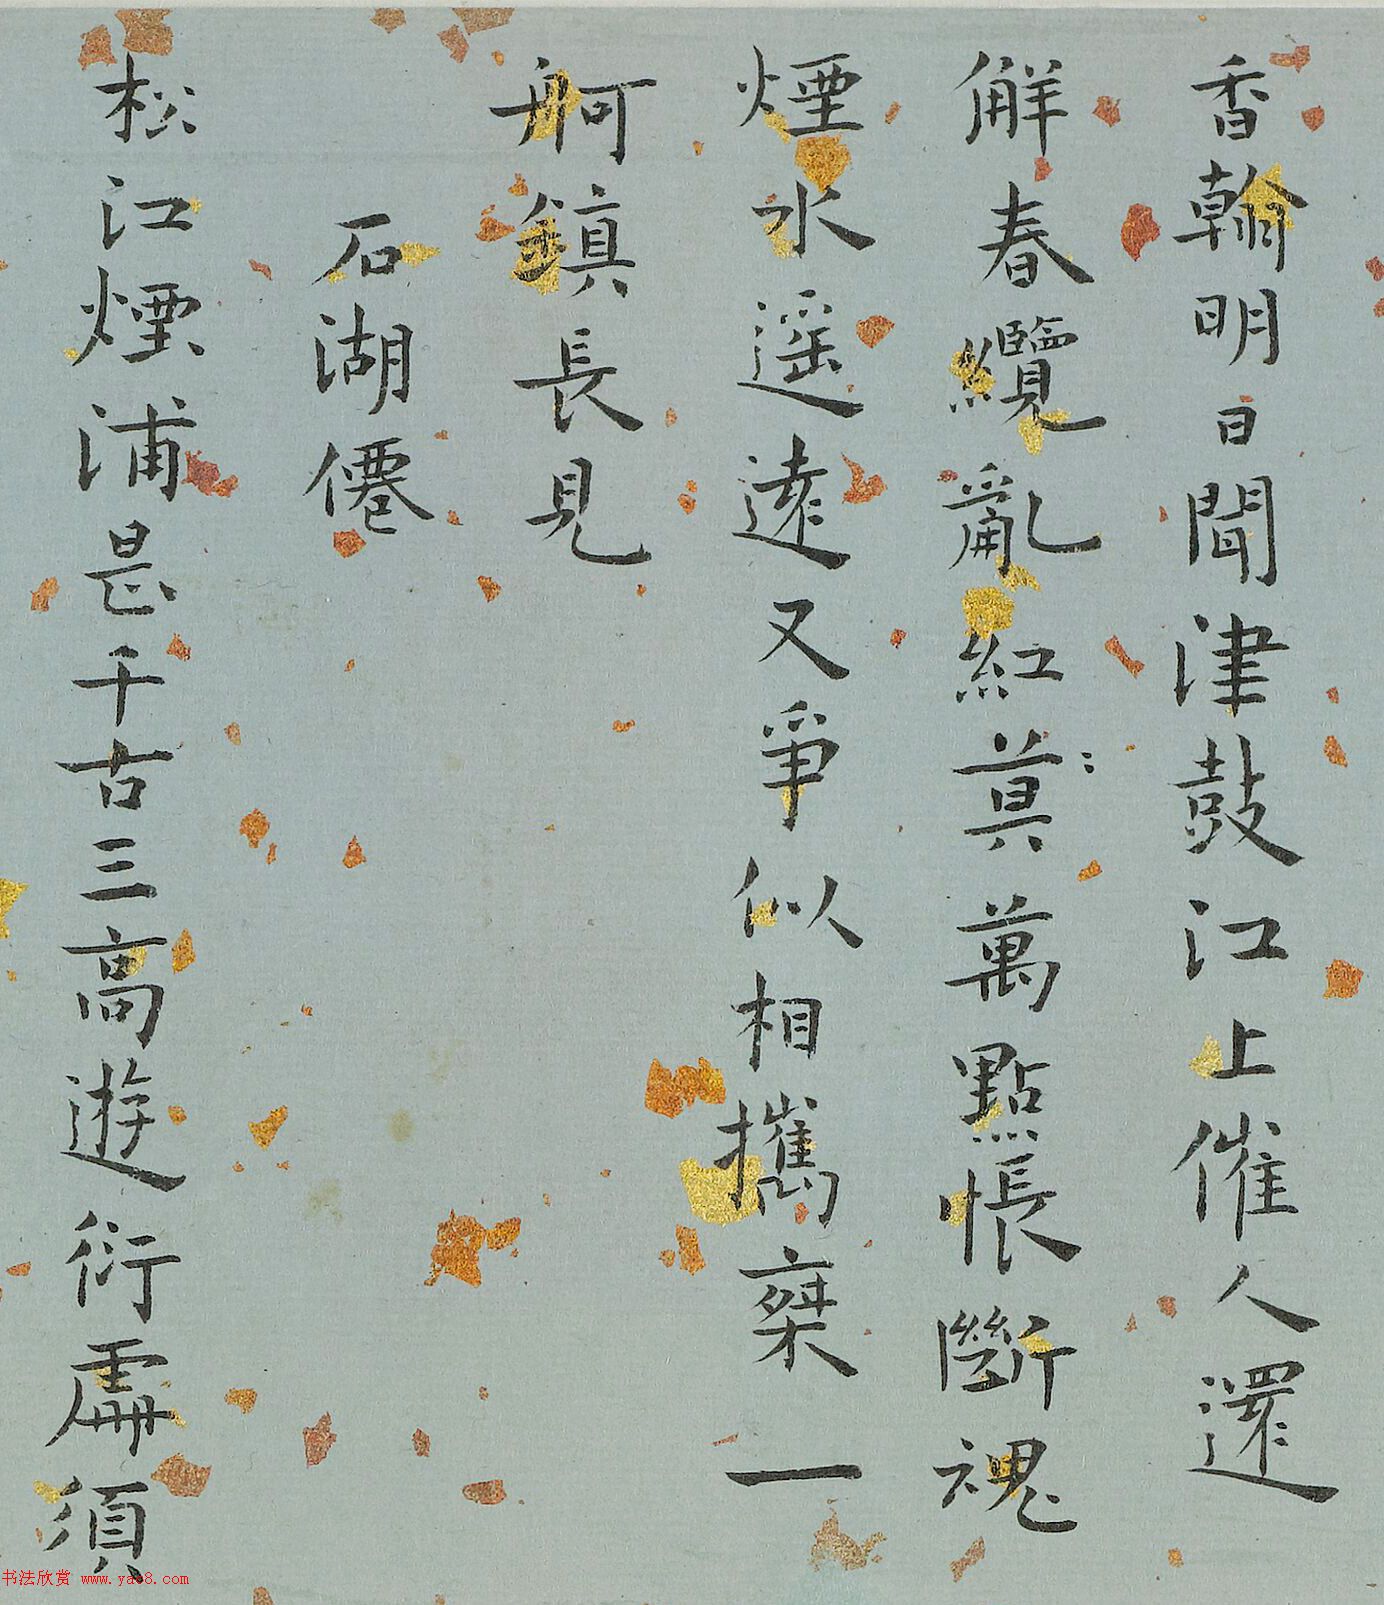 香翰明日聞津鼓江上催人還
解春纜亂紅萬點悵斷魂
煙水遥遠又爭似相攜乘一
舸鎮長見
石湖僊
松江煙浦是千古三高遊衍處須
书法欣赏 www.yac8.com